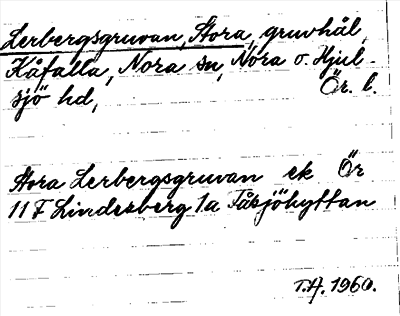 Lerbergsgruvan, Stora, gruvhål,
Kåfalla, Nora sn, Nora o. Hjul-
sjö hd, Ör. l.
Stora Lerbergsgruvan ek Ör
11 F Lindesberg 1a Fåsjöhyttan
T.A. 1960.